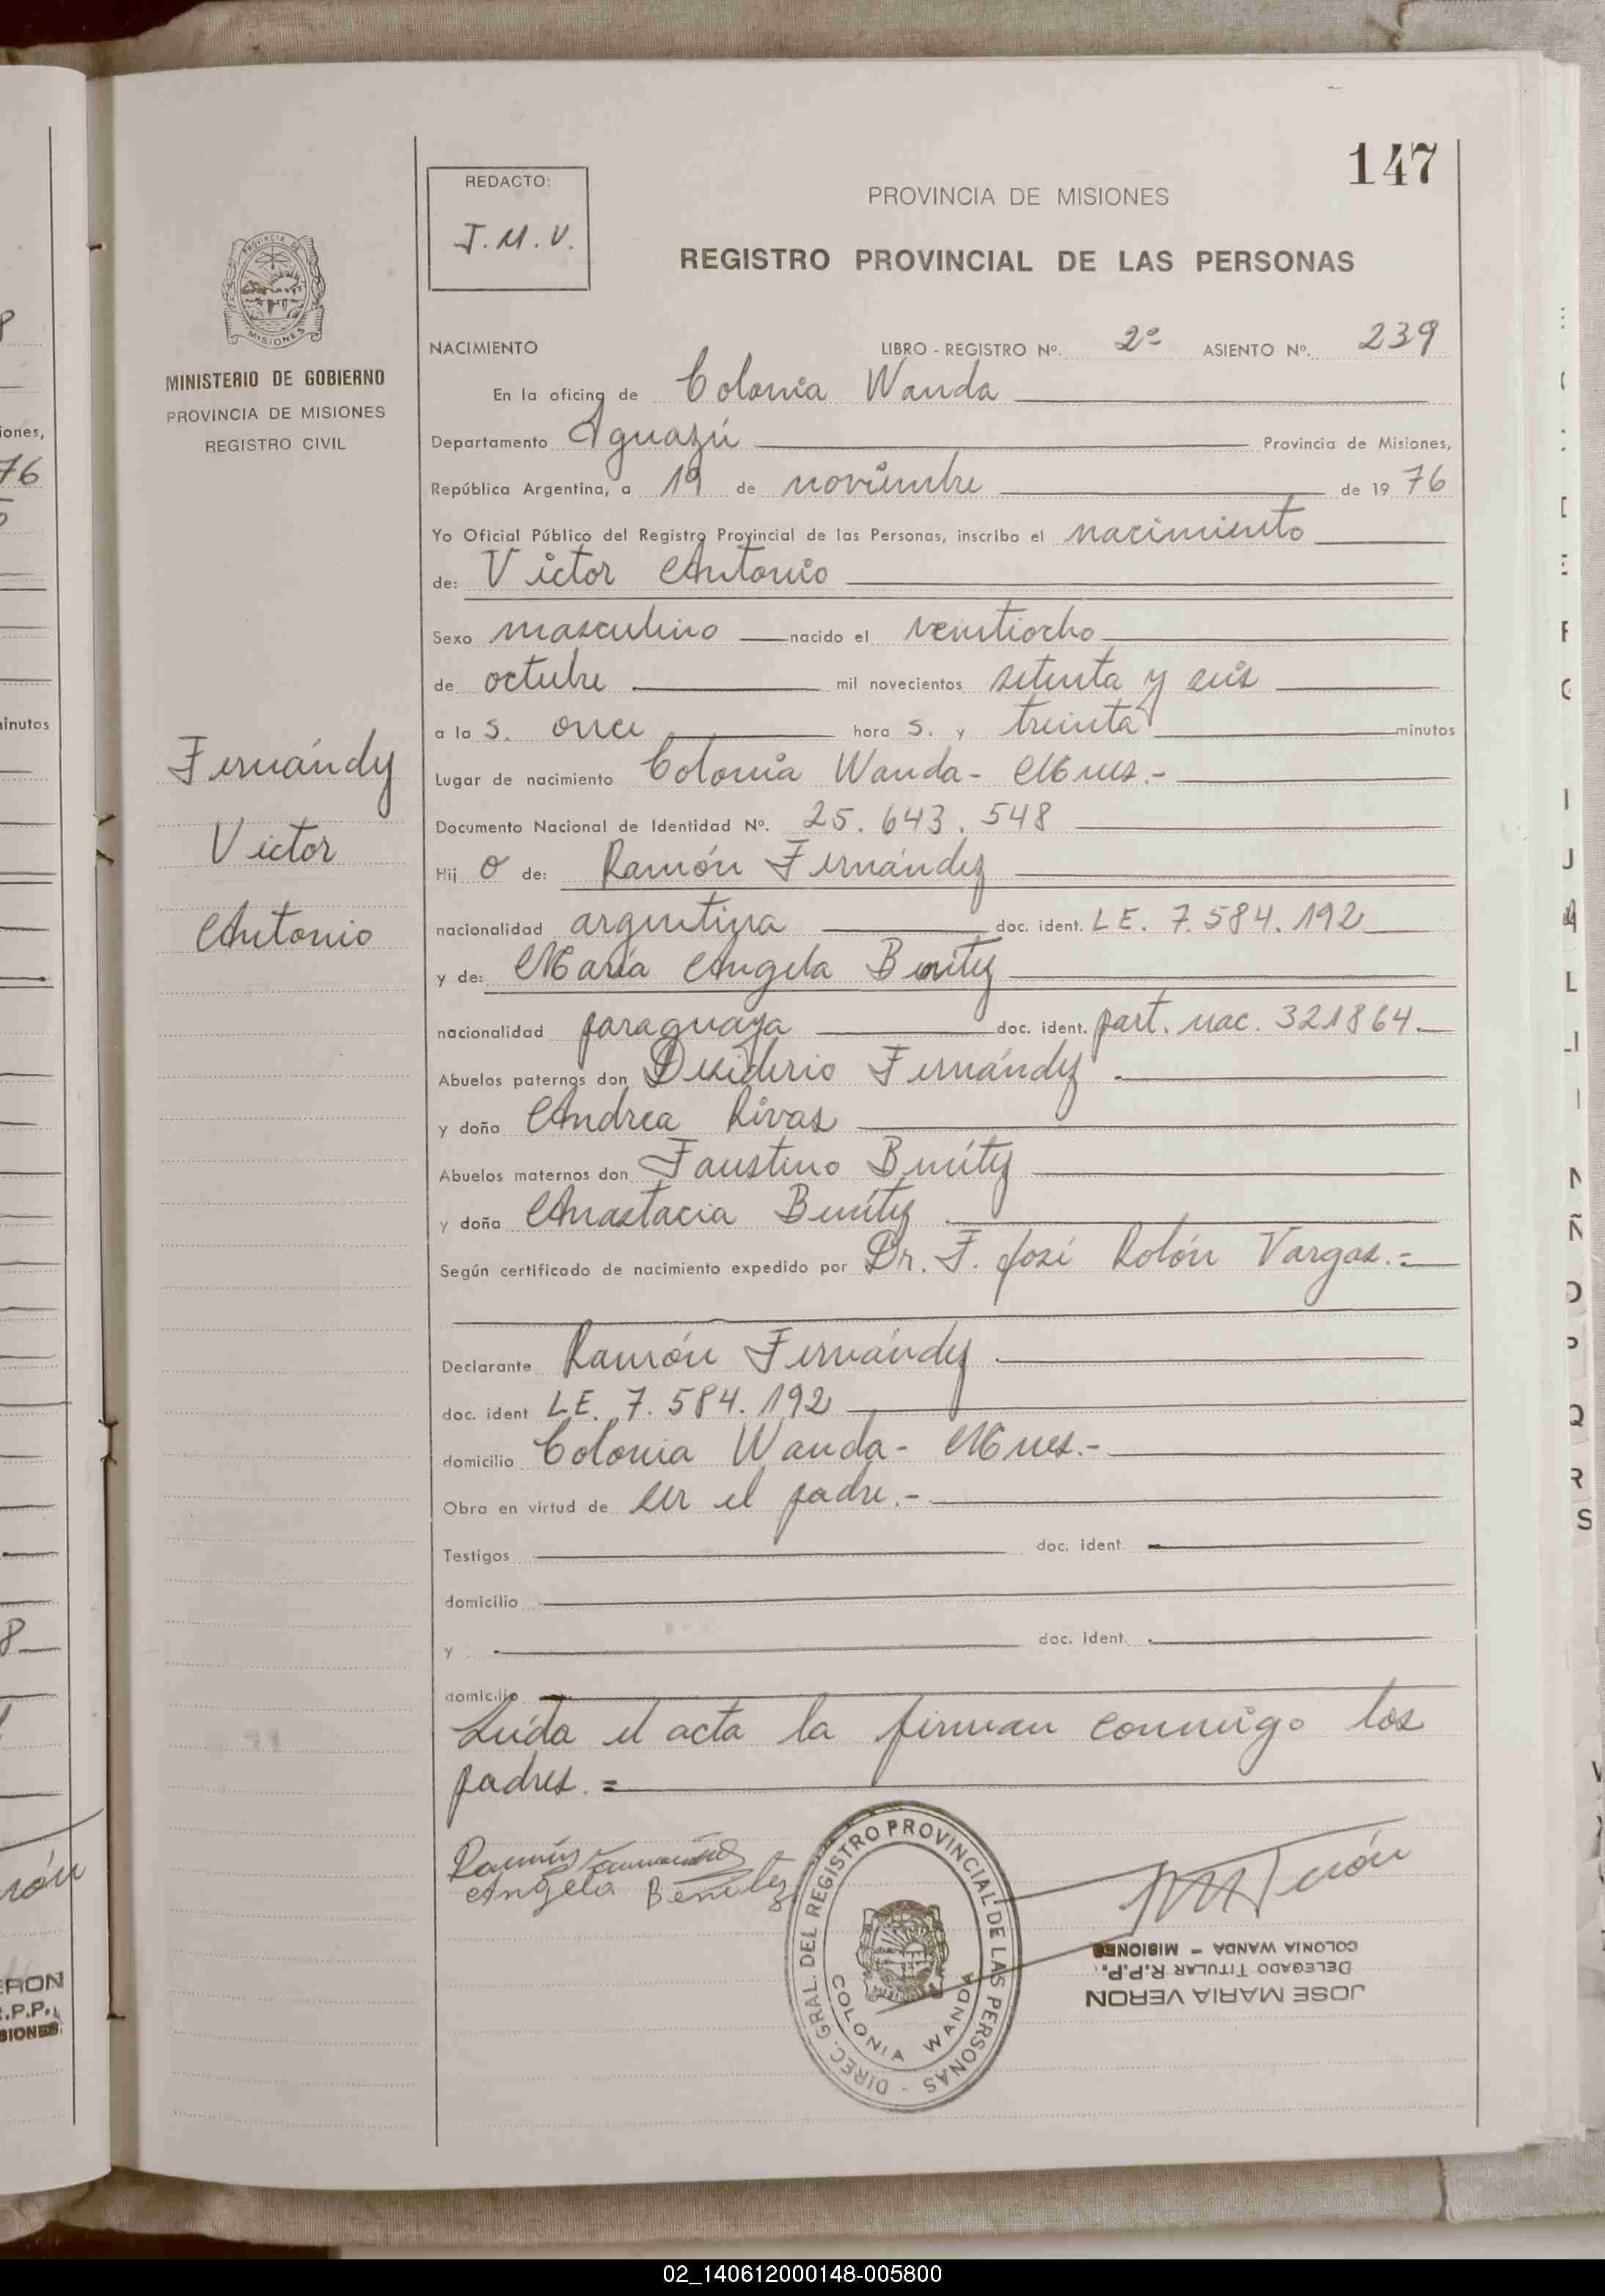 147
REDACTO:
J.M.V.
PROVINCIA DE MISIONES
REGISTRO PROVINCIAL DE LAS PERSONAS
PROVINCIA DE
MISIONES
MINISTERIO DE GOBIERNO
PROVINCIA DE MISIONES
REGISTRO CIVIL
NACIMIENTO LIBRO - REGISTRO Nº. 2º ASIENTO Nº. 239
En la oficina de Colonia Wanda
Departamento Iguazú Provincia de Misiones,
República Argentina, a 19 de noviembre de 19 76
Yo Oficial Público del Registro Provincial de las Personas, inscribo el nacimiento
de: Victor Antonio
Sexo masculino nacido el veintiocho
de octubre mil novecientos setenta y seis
a la s. once hora s. y treinta minutos
Lugar de nacimiento Colonia Wanda - Mnes.-
Documento Nacional de Identidad Nº. 25.643.548
Hij o de: Ramón Fernández
nacionalidad argentina doc. ident. LE. 7.584.192
y de: María Angela Benítez
nacionalidad paraguaya doc. ident. part. nac. 321864.
Abuelos paternos don Desiderio Fernández.
y doña Andrea Rivas
Abuelos maternos don Faustino Benítez
y doña Anastacia Benítez
Según certificado de nacimiento expedido por Dr. F. José Rolón Vargas.=
Declarante Ramón Fernández.
doc. ident LE. 7.584.192
domicilio Colonia Wanda - Mnes.-
Obra en virtud de ser el padre.-
Testigos doc. ident
domicilio
y doc. ident.
domicilio
Leída el acta la firman conmigo los
padres.=
Fernández
Victor
Antonio
Ramón Fernández
Angela Benitez
DIREC. GRAL. DEL REGISTRO PROVINCIAL DE LAS PERSONAS -
COLONIA WANDA
JOSE MARIA VERON
DELEGADO TITULAR R.P.P.
COLONIA WANDA - MISIONES
iones,
76
minutos
8
rón
ERON
R.P.P.
SIONES
F
G
I
J
L
N
Ñ
O
P
Q
R
S
02_140612000148-005800